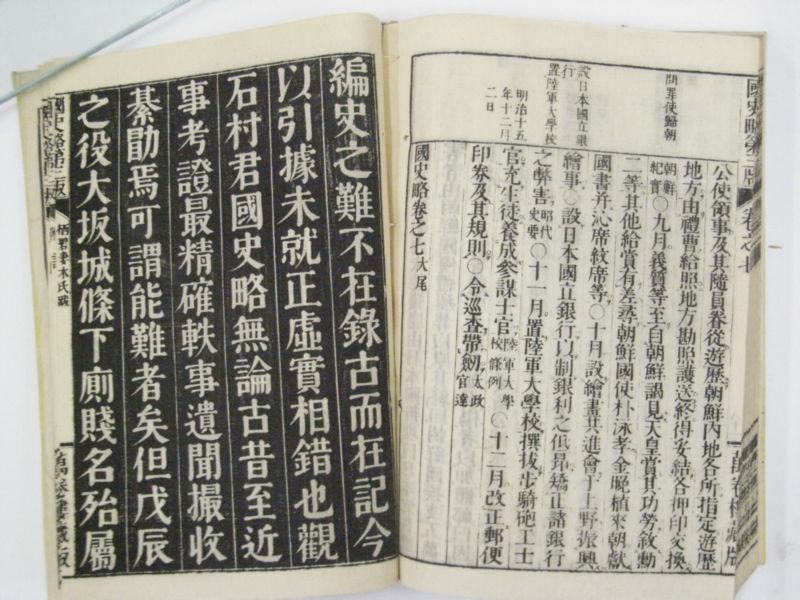 問罪使歸朝
設日本國立銀
行
置陸軍大學校
明治十五
年十二月
二日
公使領事及其隨員眷從遊歷朝鮮內地各所指定遊歷
地方由禮曹給照地方勘照護送終得妥結各押印交換
朝鮮
紀實〇九月義質等至自朝鮮謁見天皇賞其功勞敘勳
二等其他給賞有差尋朝鮮國使朴泳孝金晩植來朝獻
國書幷沁席紋席等〇十月設繪畫共進會于上野振興
繪事〇設日本國立銀行以制銀利之低昂矯正諸銀行
之弊害昭代
史要〇十一月置陸軍大學校撰拔步騎砲工士
官充生徒養成參謀士官陸軍大學
校條例〇十二月改正郵便
印券及其規則〇令巡査帶劒太政
官達
國史略卷之七大尾
編史之難不在錄古而在記今
以引據未就正虛實相錯也觀
石村君國史略無論古昔至近
事考證最精確軼事遺聞撮收
綦勖焉可謂能難者矣但戊辰
之役大坂城條下廁賤名殆屬